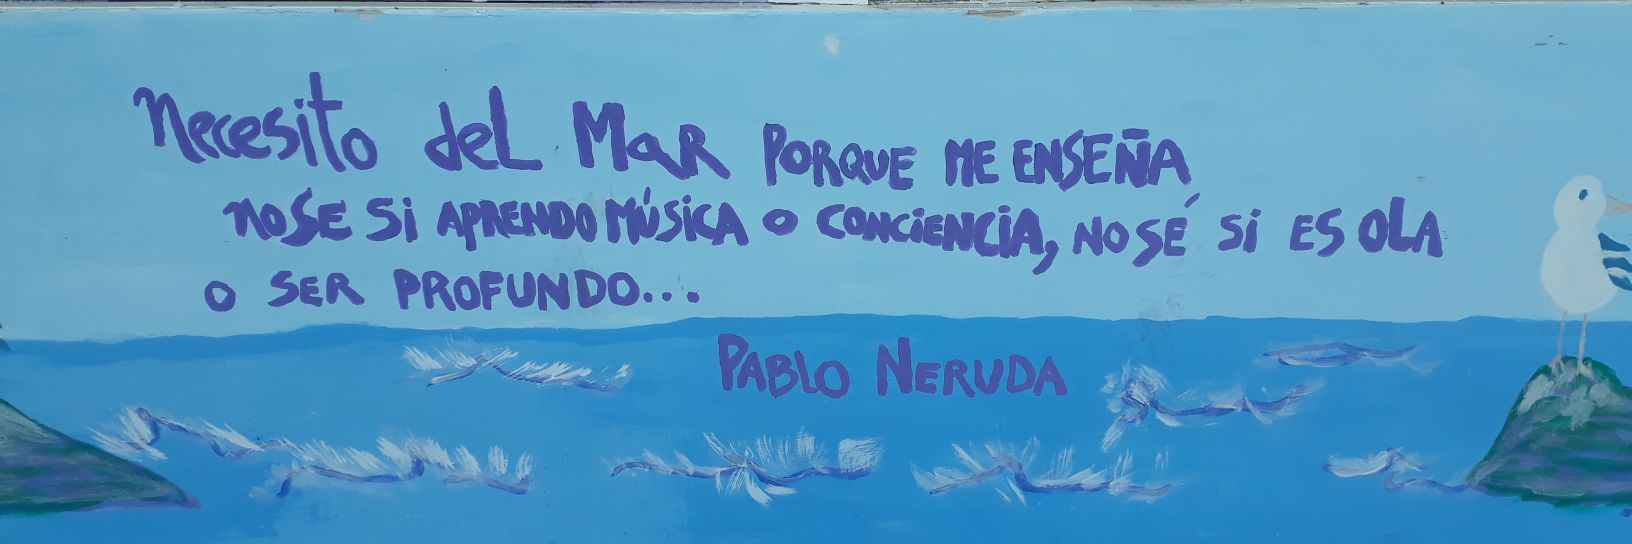 Necesito del Mar PORQUE ME ENSEÑA
NO SE Si APRENDO MÚSiCA O CONCiENCiA, NO SÉ Si ES OLA
O SER PROFUNDO...
PABLO NERUDA